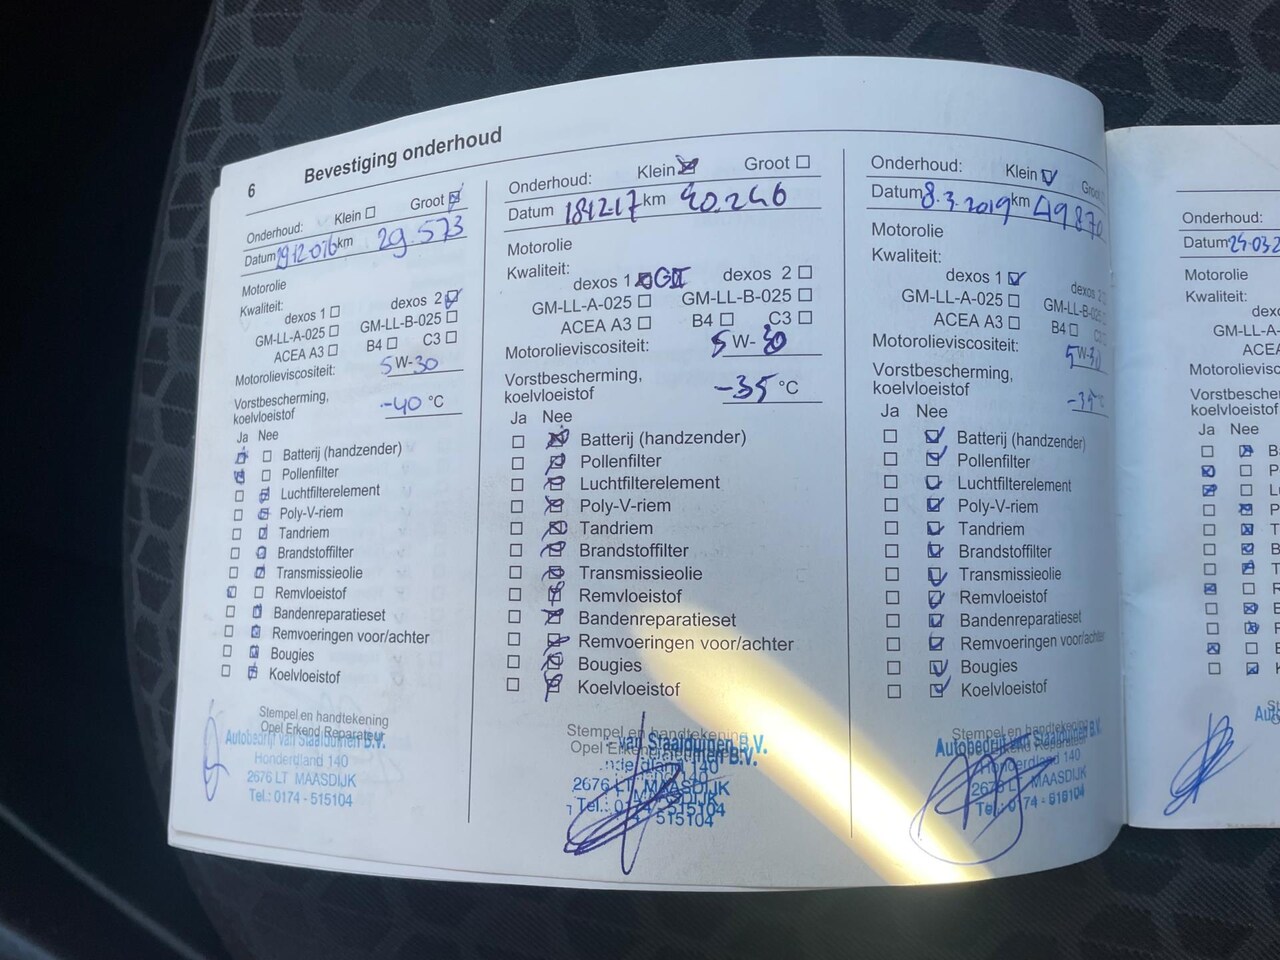 6 Bevestiging onderhoud
Onderhoud: Klein Groot
Datum km 29.573
Motorolie
Kwaliteit:
dexos 1 dexos 2
GM-LL-A-025 GM-LL-B-025
ACEA A3 B4 C3
Motorolieviscositeit: 5 W-30
Vorstbescherming,
koelvloeistof -40 °C
Ja Nee
Batterij (handzender)
Pollenfilter
Luchtfilterelement
Poly-V-riem
Tandriem
Brandstoffilter
Transmissieolie
Remvloeistof
Bandenreparatieset
Remvoeringen voor/achter
Bougies
Koelvloeistof
Stempel en handtekening
Opel Erkend Reparateur
Autobedrijf van Staalduinen B.V.
Honderdland 140
2676 LT MAASDIJK
Tel.: 0174 - 515104
Onderhoud: Klein Groot
Datum 181217 km 40.246
Motorolie
Kwaliteit:
dexos 1 dexos 2
GM-LL-A-025 GM-LL-B-025
ACEA A3 B4 C3
Motorolieviscositeit: 5 W-30
Vorstbescherming,
koelvloeistof -35 °C
Ja Nee
Batterij (handzender)
Pollenfilter
Luchtfilterelement
Poly-V-riem
Tandriem
Brandstoffilter
Transmissieolie
Remvloeistof
Bandenreparatieset
Remvoeringen voor/achter
Bougies
Koelvloeistof
Stempel en handtekening
Opel Erkend
van Staalduinen B.V.
2676 LT MAASDIJK
Tel.: 0174 - 515104
515104
Onderhoud: Klein
Datum 8.3.2019 km 4987
Motorolie
Kwaliteit:
dexos 1 dexos 2
GM-LL-A-025 GM-LL-B-025
ACEA A3 B4
Motorolieviscositeit: 5 W-30
Vorstbescherming,
koelvloeistof
Ja Nee
Batterij (handzender)
Pollenfilter
Luchtfilterelement
Poly-V-riem
Tandriem
Brandstoffilter
Transmissieolie
Remvloeistof
Bandenreparatieset
Remvoeringen voor/achter
Bougies
Koelvloeistof
Stempel en handtekening
Autobedrijf van Staalduinen B.V.
Honderdland 140
2676 LT MAASDIJK
Tel.: 0174 - 515104
Onderhoud:
Datum
Motorolie
Kwaliteit:
Ja Nee